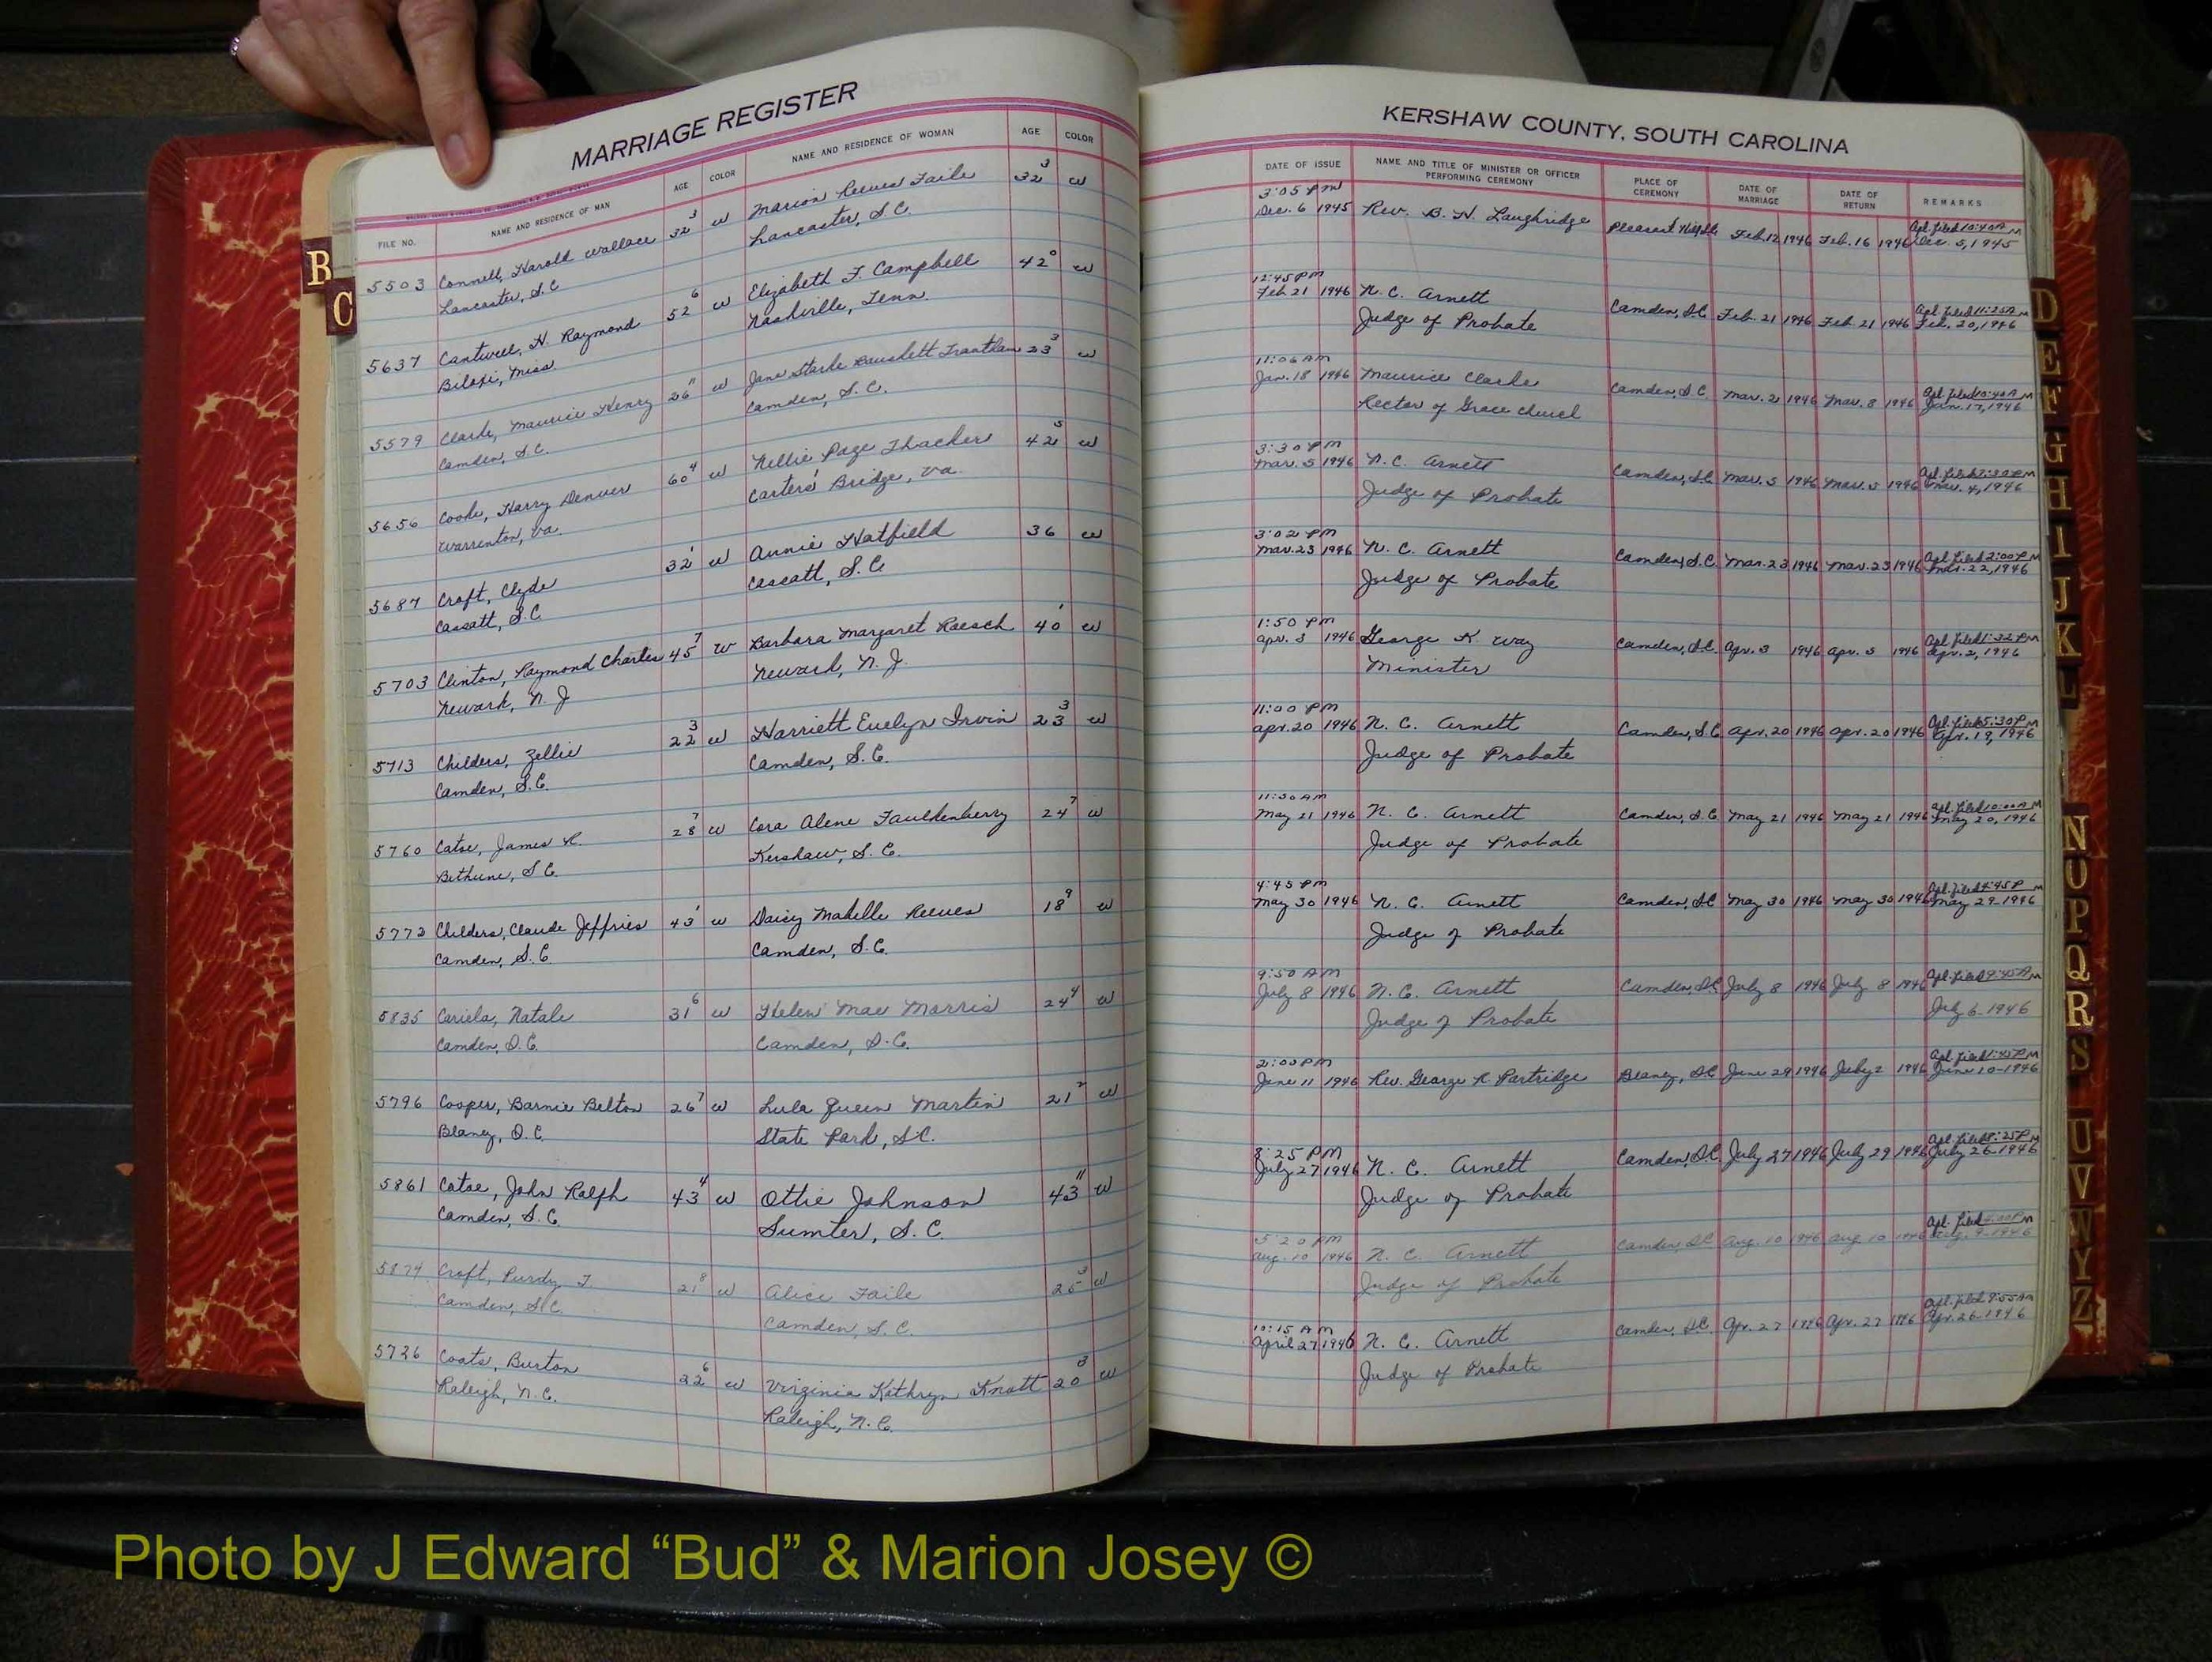 MARRIAGE REGISTER
FILE NO. NAME AND RESIDENCE OF MAN AGE COLOR NAME AND RESIDENCE OF WOMAN AGE COLOR
5503 Connell, Harold Wallace 32 3 W Marion Reeves Faile 32 3 W
Lancaster, S.C. Lancaster, S.C.
5637 Cantwell, H. Raymond 52 6 W Elizabeth F. Campbell 42 0 W
Biloxi, Miss Nashville, Tenn.
5579 Clarke, Maurice Henry 26 11 W Jane Starke Trantham 23 3 W
Camden, S.C. Camden, S.C.
5656 Cooke, Harry Denver 60 4 W Nellie Page Thacker 42 5 W
Warrenton, Va. Carters' Bridge, Va.
5687 Croft, Clyde 32 1 W Annie Hatfield 36 W
Cassatt, S.C. Cassatt, S.C.
5703 Clinton, Raymond Charles 45 7 W Barbara Margaret Raesch 40 1 W
Newark, N.J. Newark, N.J.
5713 Childers, Zellie 22 3 W Harriett Evelyn Irvin 23 3 W
Camden, S.C. Camden, S.C.
5760 Catoe, James R. 28 7 W Cora Alene Faulkenberry 24 7 W
Bethune, S.C. Kershaw, S.C.
5772 Childers, Claude Jeffries 43 1 W Daisy Mabelle Reeves 18 9 W
Camden, S.C. Camden, S.C.
5835 Cariela, Natale 31 6 W Helen Mae Morris 24 4 W
Camden, S.C. Camden, S.C.
5796 Cooper, Barnie Belton 26 7 W Lula Queen Martin 21 2 W
Blaney, S.C. State Park, S.C.
5861 Catoe, John Ralph 43 4 W Ottie Johnson 43 11 W
Camden, S.C. Sumter, S.C.
5874 Croft, Purdy T. 21 8 W Alice Faile 25 3 W
Camden, S.C. Camden, S.C.
5726 Coats, Burton 22 6 W Virginia Kathryn Knott 20 3 W
Raleigh, N.C. Raleigh, N.C.
B
C
KERSHAW COUNTY, SOUTH CAROLINA
DATE OF ISSUE NAME AND TITLE OF MINISTER OR OFFICER PERFORMING CEREMONY PLACE OF CEREMONY DATE OF MARRIAGE DATE OF RETURN REMARKS
3:05 PM Apl. filed 10:40 A M
Dec. 6 1945 Rev. B. H. Laughridge Pleasant Hill, S.C. Feb. 12 1946 Feb. 16 1946 Dec. 5, 1945
12:45 PM Apl. filed 11:25 A M
Feb. 21 1946 N. C. Arnett Camden, S.C. Feb. 21 1946 Feb. 21 1946 Feb. 20, 1946
Judge of Probate
11:06 AM Apl. filed 10:40 A M
Jan. 18 1946 Maurice Clarke Camden, S.C. Mar. 2 1946 Mar. 8 1946 Jan. 17, 1946
Rector of Grace Church
3:30 PM Apl. filed 2:30 P M
Mar. 5 1946 N. C. Arnett Camden, S.C. Mar. 5 1946 Mar. 5 1946 Mar. 4, 1946
Judge of Probate
3:02 PM Apl. filed 2:00 P M
Mar. 23 1946 N. C. Arnett Camden, S.C. Mar. 23 1946 Mar. 23 1946 Mar. 22, 1946
Judge of Probate
1:50 PM Apl. filed 1:32 P M
Apr. 3 1946 George K. Way Camden, S.C. Apr. 3 1946 Apr. 5 1946 Apr. 2, 1946
Minister
11:00 PM Apl. filed 5:30 P M
Apr. 20 1946 N. C. Arnett Camden, S.C. Apr. 20 1946 Apr. 20 1946 Apr. 19, 1946
Judge of Probate
11:30 AM Apl. filed 10:00 A M
May 21 1946 N. C. Arnett Camden, S.C. May 21 1946 May 21 1946 May 20, 1946
Judge of Probate
4:45 PM Apl. filed 4:45 P M
May 30 1946 N. C. Arnett Camden, S.C. May 30 1946 May 30 1946 May 29-1946
Judge of Probate
9:50 AM Apl. filed 9:45 A M
July 8 1946 N. C. Arnett Camden, S.C. July 8 1946 July 8 1946
Judge of Probate July 6-1946
2:00 PM Apl. filed 1:45 P M
June 11 1946 Rev. George R. Partridge Blaney, S.C. June 29 1946 July 2 1946 June 10-1946
8:25 PM Apl. filed 8:25 P M
July 27 1946 N. C. Arnett Camden, S.C. July 27 1946 July 29 1946 July 26-1946
Judge of Probate
5:20 PM Apl. filed P M
Aug. 10 1946 N. C. Arnett Camden, S.C. Aug. 10 1946 Aug. 10 1946 9-1946
Judge of Probate
10:15 AM Apl. filed 9:55 AM
April 27 1946 N. C. Arnett Camden, S.C. Apr. 27 1946 Apr. 27 1946 Apr. 26-1946
Judge of Probate
D
E
F
G
H
I
J
K
L
N
O
P
Q
R
S
U
V
W
Y
Z
Photo by J Edward “Bud” & Marion Josey ©